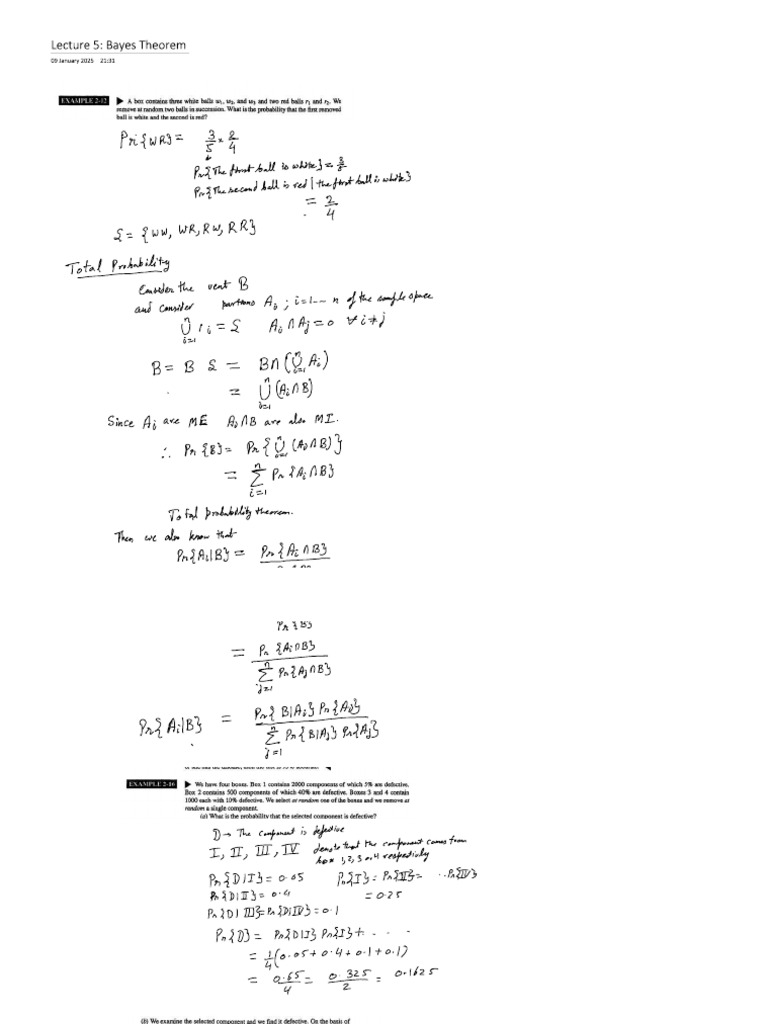 Lecture 5: Bayes Theorem
09 January 2025 21:31
EXAMPLE 2-12 ▶ A box contains three white balls w₁, w₂, and w₃ and two red balls r₁ and r₂. We
remove at random two balls in succession. What is the probability that the first removed
ball is white and the second is red?
Pr{WR} = 3/5 × 2/4
Pr{The first ball is white} = 3/5
Pr{The second ball is red | the first ball is white}
= 2/4
S = {WW, WR, RW, RR}
Total Probability
Consider the vent B
and consider Aᵢ ; i=1-- n of the sample space
⋃ᵢ₌₁ⁿ ᵢ = S Aᵢ ∩ Aⱼ = 0 ∀ i ≠ j
B = B S = B∩(⋃ᵢ₌₁ⁿ Aᵢ)
= ⋃ᵢ₌₁ⁿ (Aᵢ∩B)
Since Aᵢ are ME Aᵢ∩B are also MI.
∴ Pr{B} = Pr{⋃ᵢ₌₁ⁿ (Aᵢ∩B)}
= ∑ᵢ₌₁ⁿ Pr{Aᵢ∩B}
Total probability theorem.
Then we also know that
Pr{Aᵢ|B} = Pr{Aᵢ∩B}
Pr{B}
= Pr{Aᵢ∩B} / ∑ⱼ₌₁ⁿ Pr{Aⱼ∩B}
Pr{Aᵢ|B} = Pr{B|Aᵢ} Pr{Aᵢ} / ∑ⱼ₌₁ⁿ Pr{B|Aⱼ} Pr{Aⱼ}
EXAMPLE 2-16 ▶ We have four boxes. Box 1 contains 2000 components of which 5% are defective.
Box 2 contains 500 components of which 40% are defective. Boxes 3 and 4 contain
1000 each with 10% defective. We select at random one of the boxes and we remove at
random a single component.
(a) What is the probability that the selected component is defective?
D → The component is defective
I, II, III, IV denote that the component comes from
box 1, 2, 3 or 4 respectively
Pr{D|I} = 0.05 Pr{I} = Pr{II} = .. Pr{IV}
Pr{D|II} = 0.4 = 0.25
Pr{D|III} = Pr{D|IV} = 0.1
Pr{D} = Pr{D|I} Pr{I} + . . .
= 1/4 (0.05 + 0.4 + 0.1 + 0.1)
= 0.65/4 = 0.325/2 = 0.1625
(b) We examine the selected component and we find it defective. On the basis of